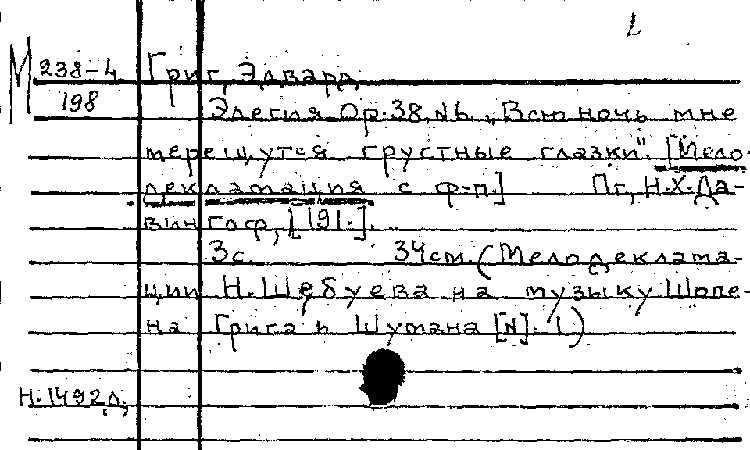 М 238-4 Григ, Эдвард
198
Элегия Ор.38.N6. „Всю ночь мне
мерещутся грустные глазки" [Мело-
декламация с ф-п.] Пг, Н.Х.Да-
вингоф, [191-].
3с. 34см. (Мелодеклама-
ции Н.Шебуева на музыку Шопе-
на Грига и Шумана [N]. 1.)
Н.1492д;